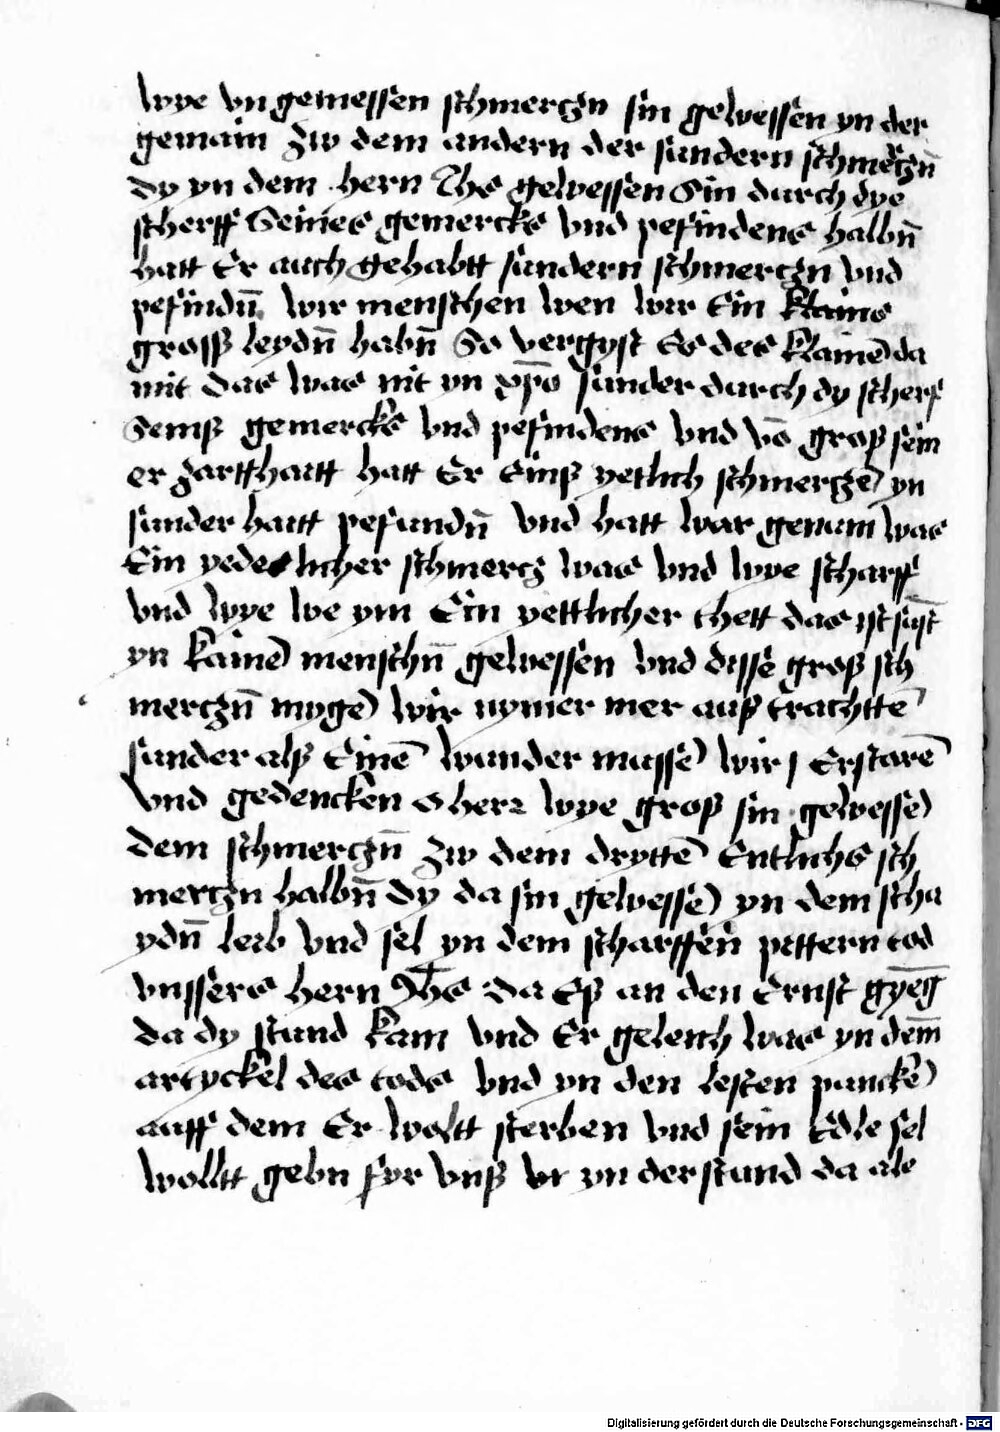 wye vn gemessen schmerczn sin gewessen yn der
gemain zw dem andern der sundern schmerczn̄
dy yn dem hern Jhs gewessen Sin durch dye
scherff Seines gemercks vnd pefindens halbn̄
hatt Er auch gehabtt sundern schmerczn vnd
pefindn̄ wir menschen wen wir Ein klains
gross leydn̄ habn̄ So vergyst Es des klainē da
mit das was nit yn xp̄o sunder durch dy scherf
Seinß gemercks vnd pefindens vnd vō groß sein
er zartthaitt hatt Er Einß yetlich schmerczē yn
sunder haitt pefundn̄ vnd hatt war genum was
Ein yedetlicher schmercz was vnd wye scharff
vnd wye we ym Ein yettlicher thett das ist sust
yn kainē menschn̄ gewessen vnd disse groß sch
merczn̄ mygē wir nymer mer auß trachttē
sunder alß Einē wunder mussē wir Erstarē
vnd gedencken o herr wye groß sin gewessē
dem schmerczn̄ zw dem dryttē Entlichs sch
merczn halbn̄ dy da sin gewessē yn dem scha
ydn̄ leib vnd sel yn dem scharffen pittern tod
vnssers hern Jhs da Eß an den Ernst gyēg
da dy stund kam vnd Er geleich was yn dem̄
artyckel des tods vnd yn den lesten punckē
auff dem Er woltt sterben vnd sein Edle sel
wolltt gebn fyr vnß vr yn der stund da ale
Digitalisierung gefördert durch die Deutsche Forschungsgemeinschaft - DFG